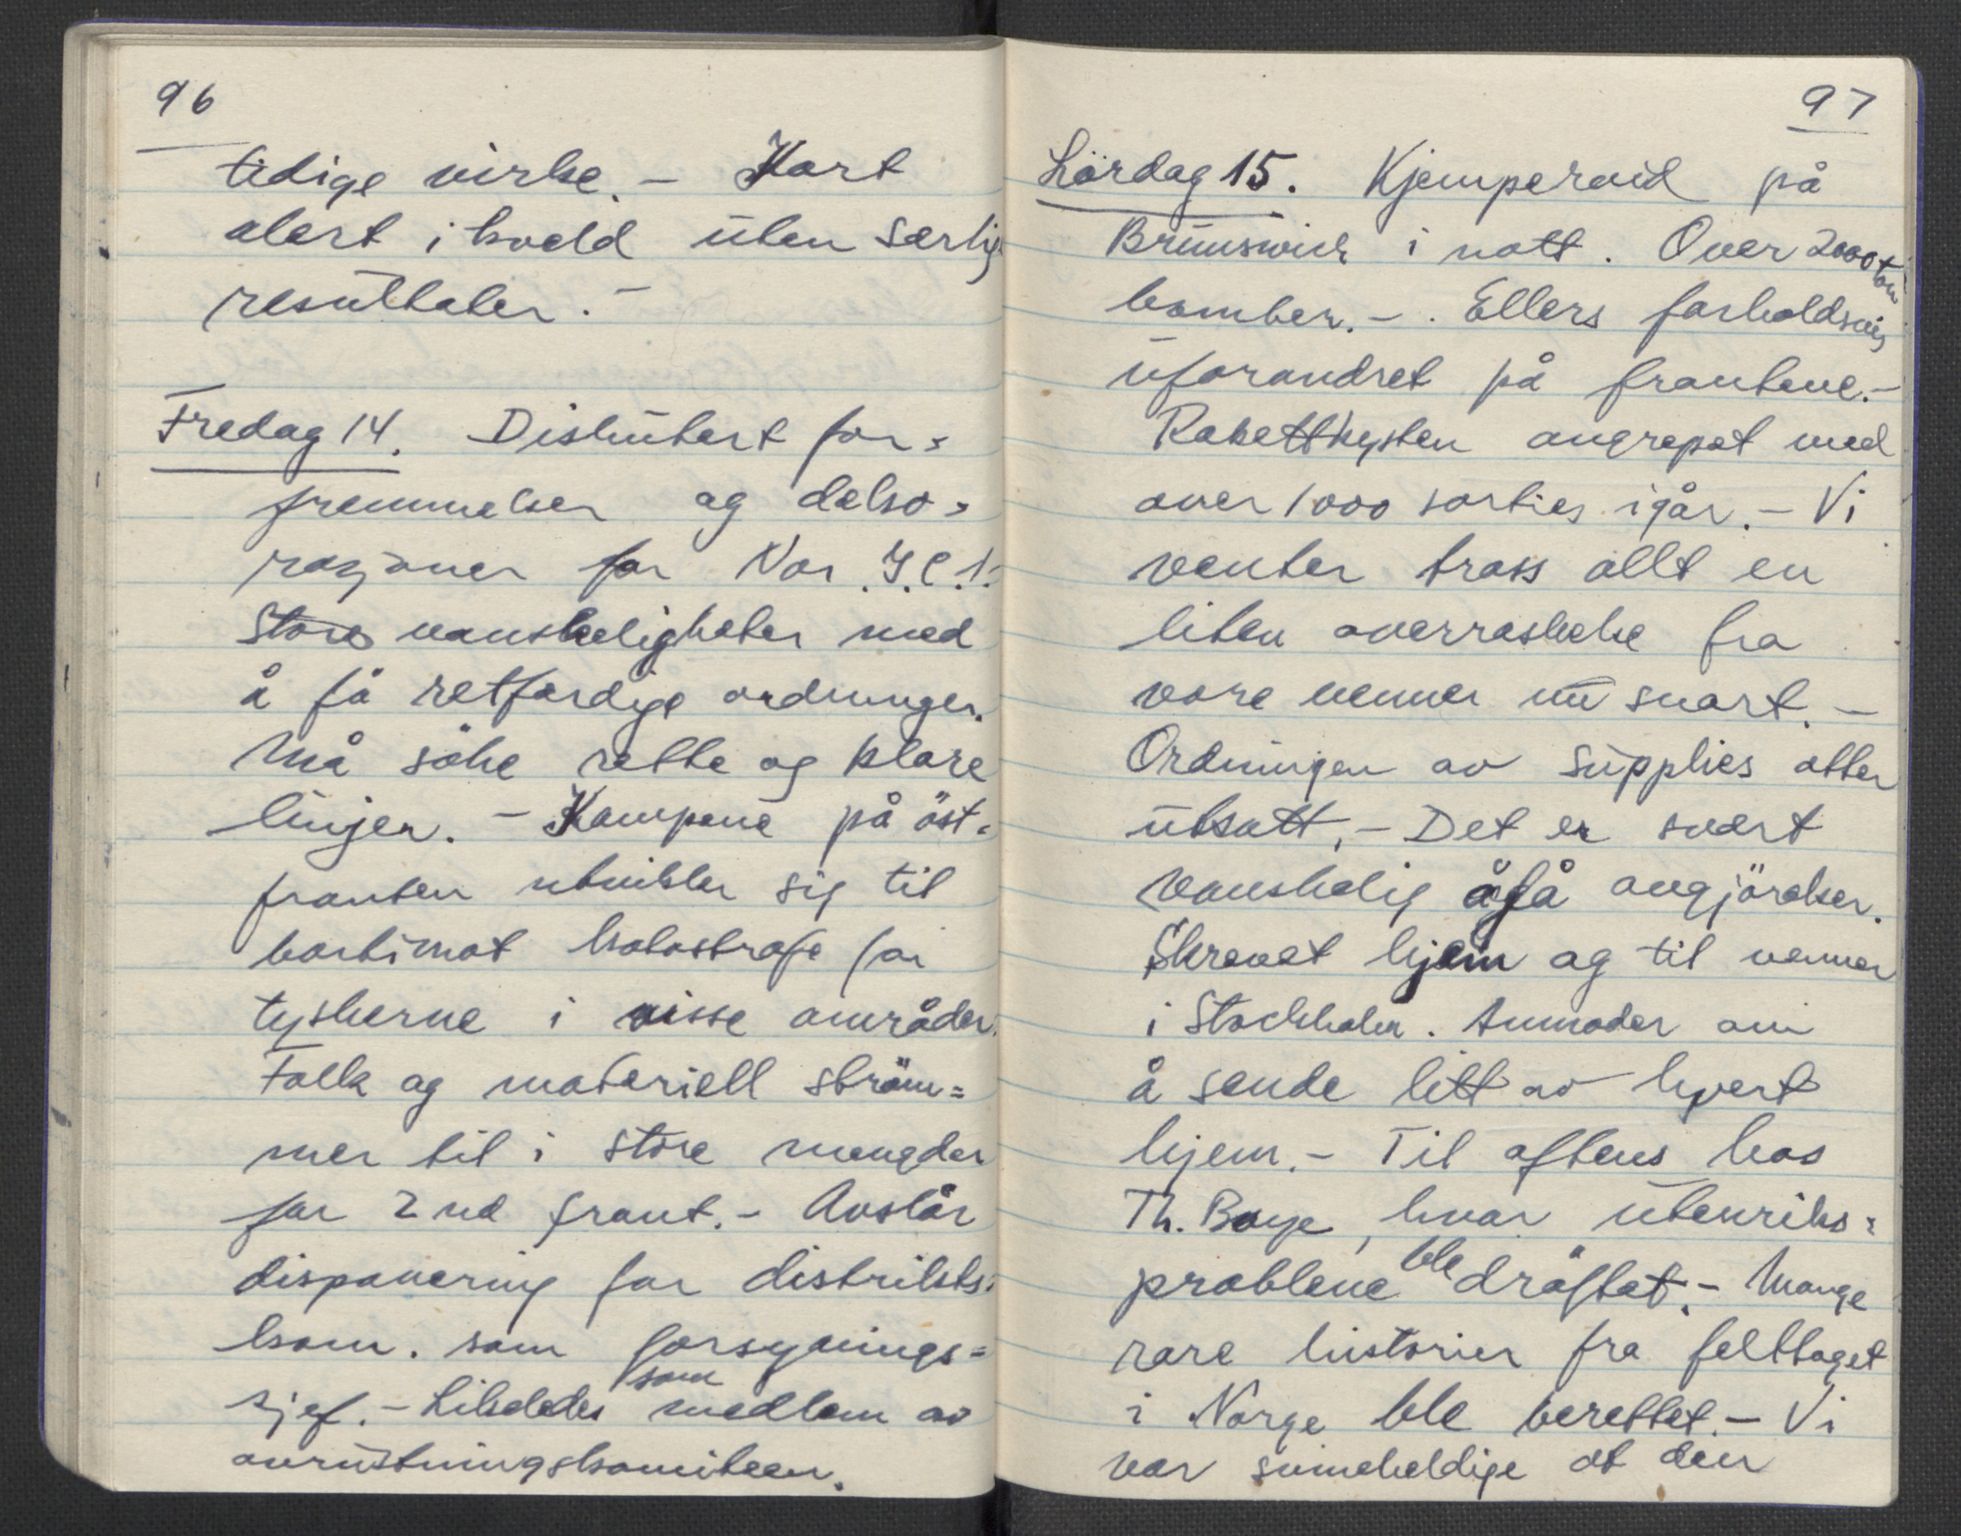 96
tidige virke. – Kort
alert i kveld uten særlig
resultater. –
Fredag 14. Diskutert for=
fremmelser og deko=
rasjoner for Nor.
Store vanskeligheter med
å få retferdige ordninger.
Må söke rette og klare
linjer. – Kampene på öst=
fronten utvikler sig til
bortimot katastrofe for
tyskerne i visse områder.
Folk og materiell ström=
mer til i store mengder
for 2nd front. – Avslår
disponering for distrikts=
kom. som forsynings=
sjef. – Likeledes som medlem av
avrustningskomiteen.
97
Lördag 15. Kjemperaid på
Brunswick i natt. Over 2000 tonn
bomber. – . Ellers forholdsvis
uforandret på frontene. –
Rakettkysten angrepet med
over 1000 sorties igår. – Vi
venter tross allt en
liten overraskelse fra
vore venner nu snart. –
Ordningen av supplies atter
utsatt. – Det er svært
vanskelig å få avgjörelser.
Skrevet hjem og til venner
i Stockholm. Anmoder om
å sende litt av hvert
hjem. – Til aftens hos
Th. Boye, hvor utenriks=
problene ble dröftet. – Mange
rare historier fra felttoget
i Norge ble berettet. – Vi
var svineheldige at den